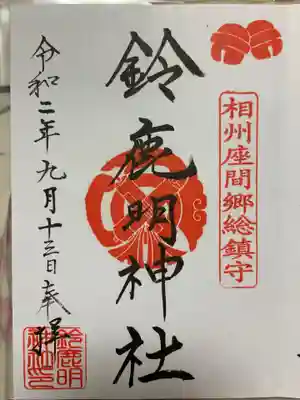 相州座間郷総鎮守
鈴鹿明神社
令和二年九月十三日奉拝
鈴鹿明神社印